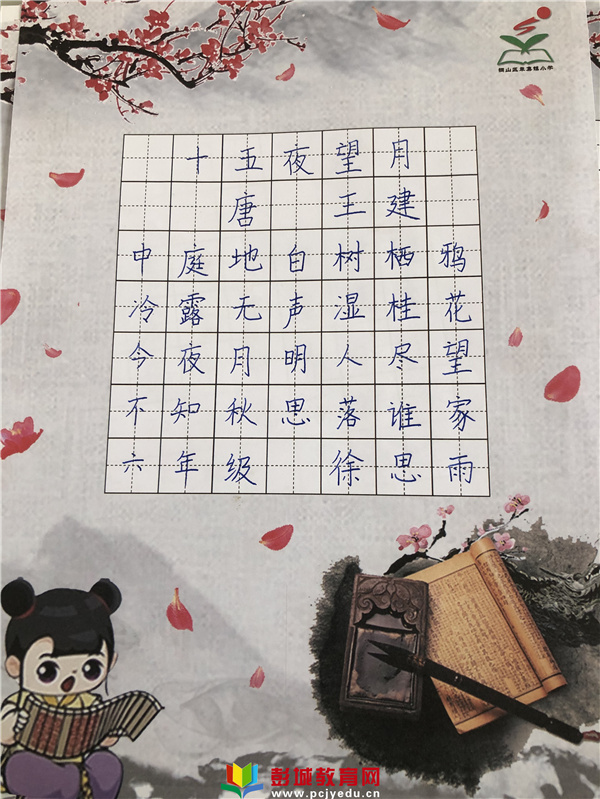 十五夜望月
唐 王建
中庭地白树栖鸦
冷露无声湿桂花
今夜月明人尽望
不知秋思落谁家
六年级 徐思雨
彭城教育网
www.pcjyedu.cn